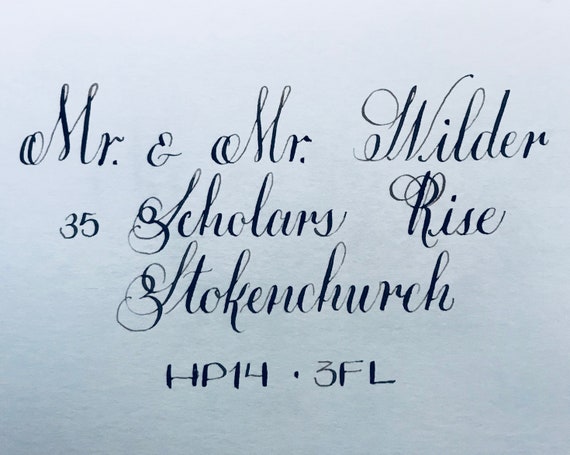 Mr. & Mr. Wilder
35 Scholars Rise
Stokenchurch
HP14 · 3FL